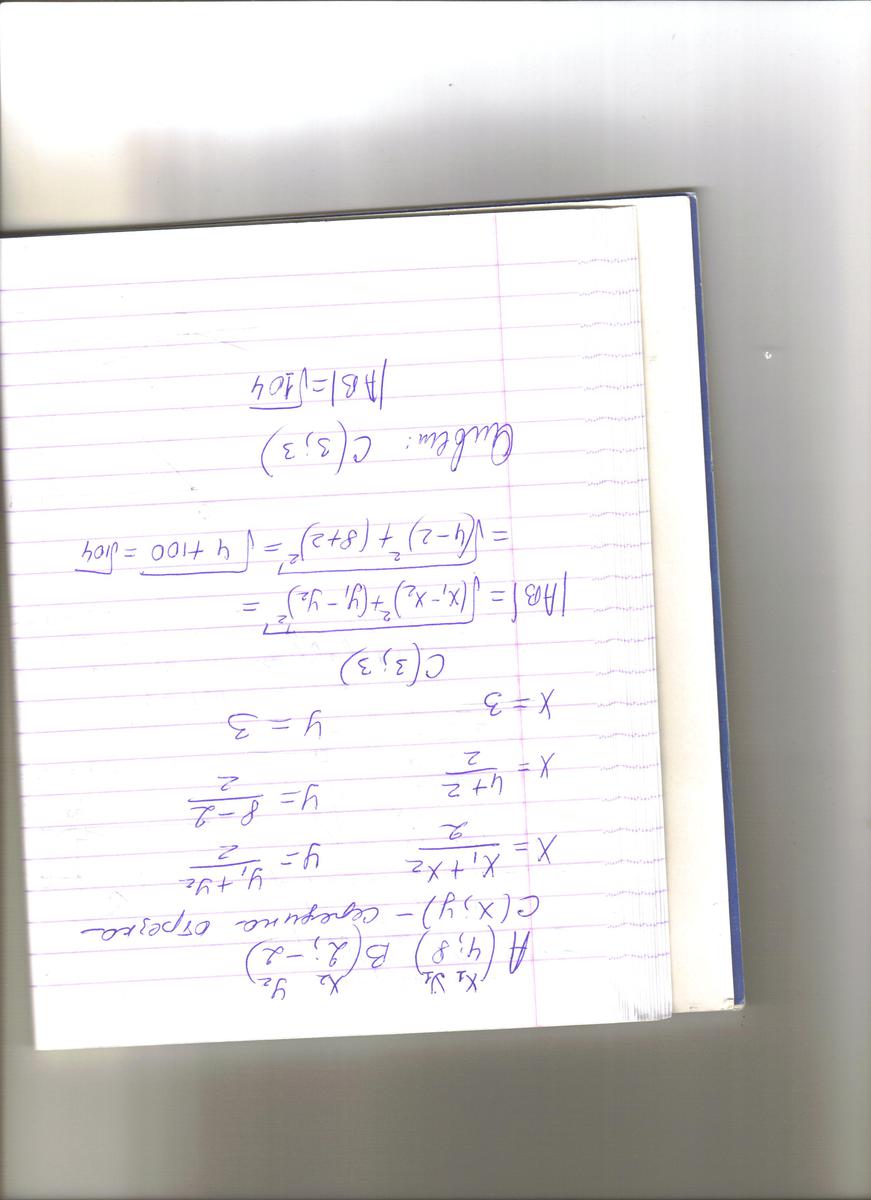 x₁ y₁ x₂ y₂
A(4;8) B(2;-2)
C(x;y) - середина отрезка
x = (x₁+x₂)/2 y = (y₁+y₂)/2
x = (4+2)/2 y = (8-2)/2
x = 3 y = 3
C(3;3)
|AB| = √((x₁-x₂)²+(y₁-y₂)²) =
= √((4-2)²+(8+2)²) = √(4+100) = √104
Ответ: C(3;3)
|AB| = √104